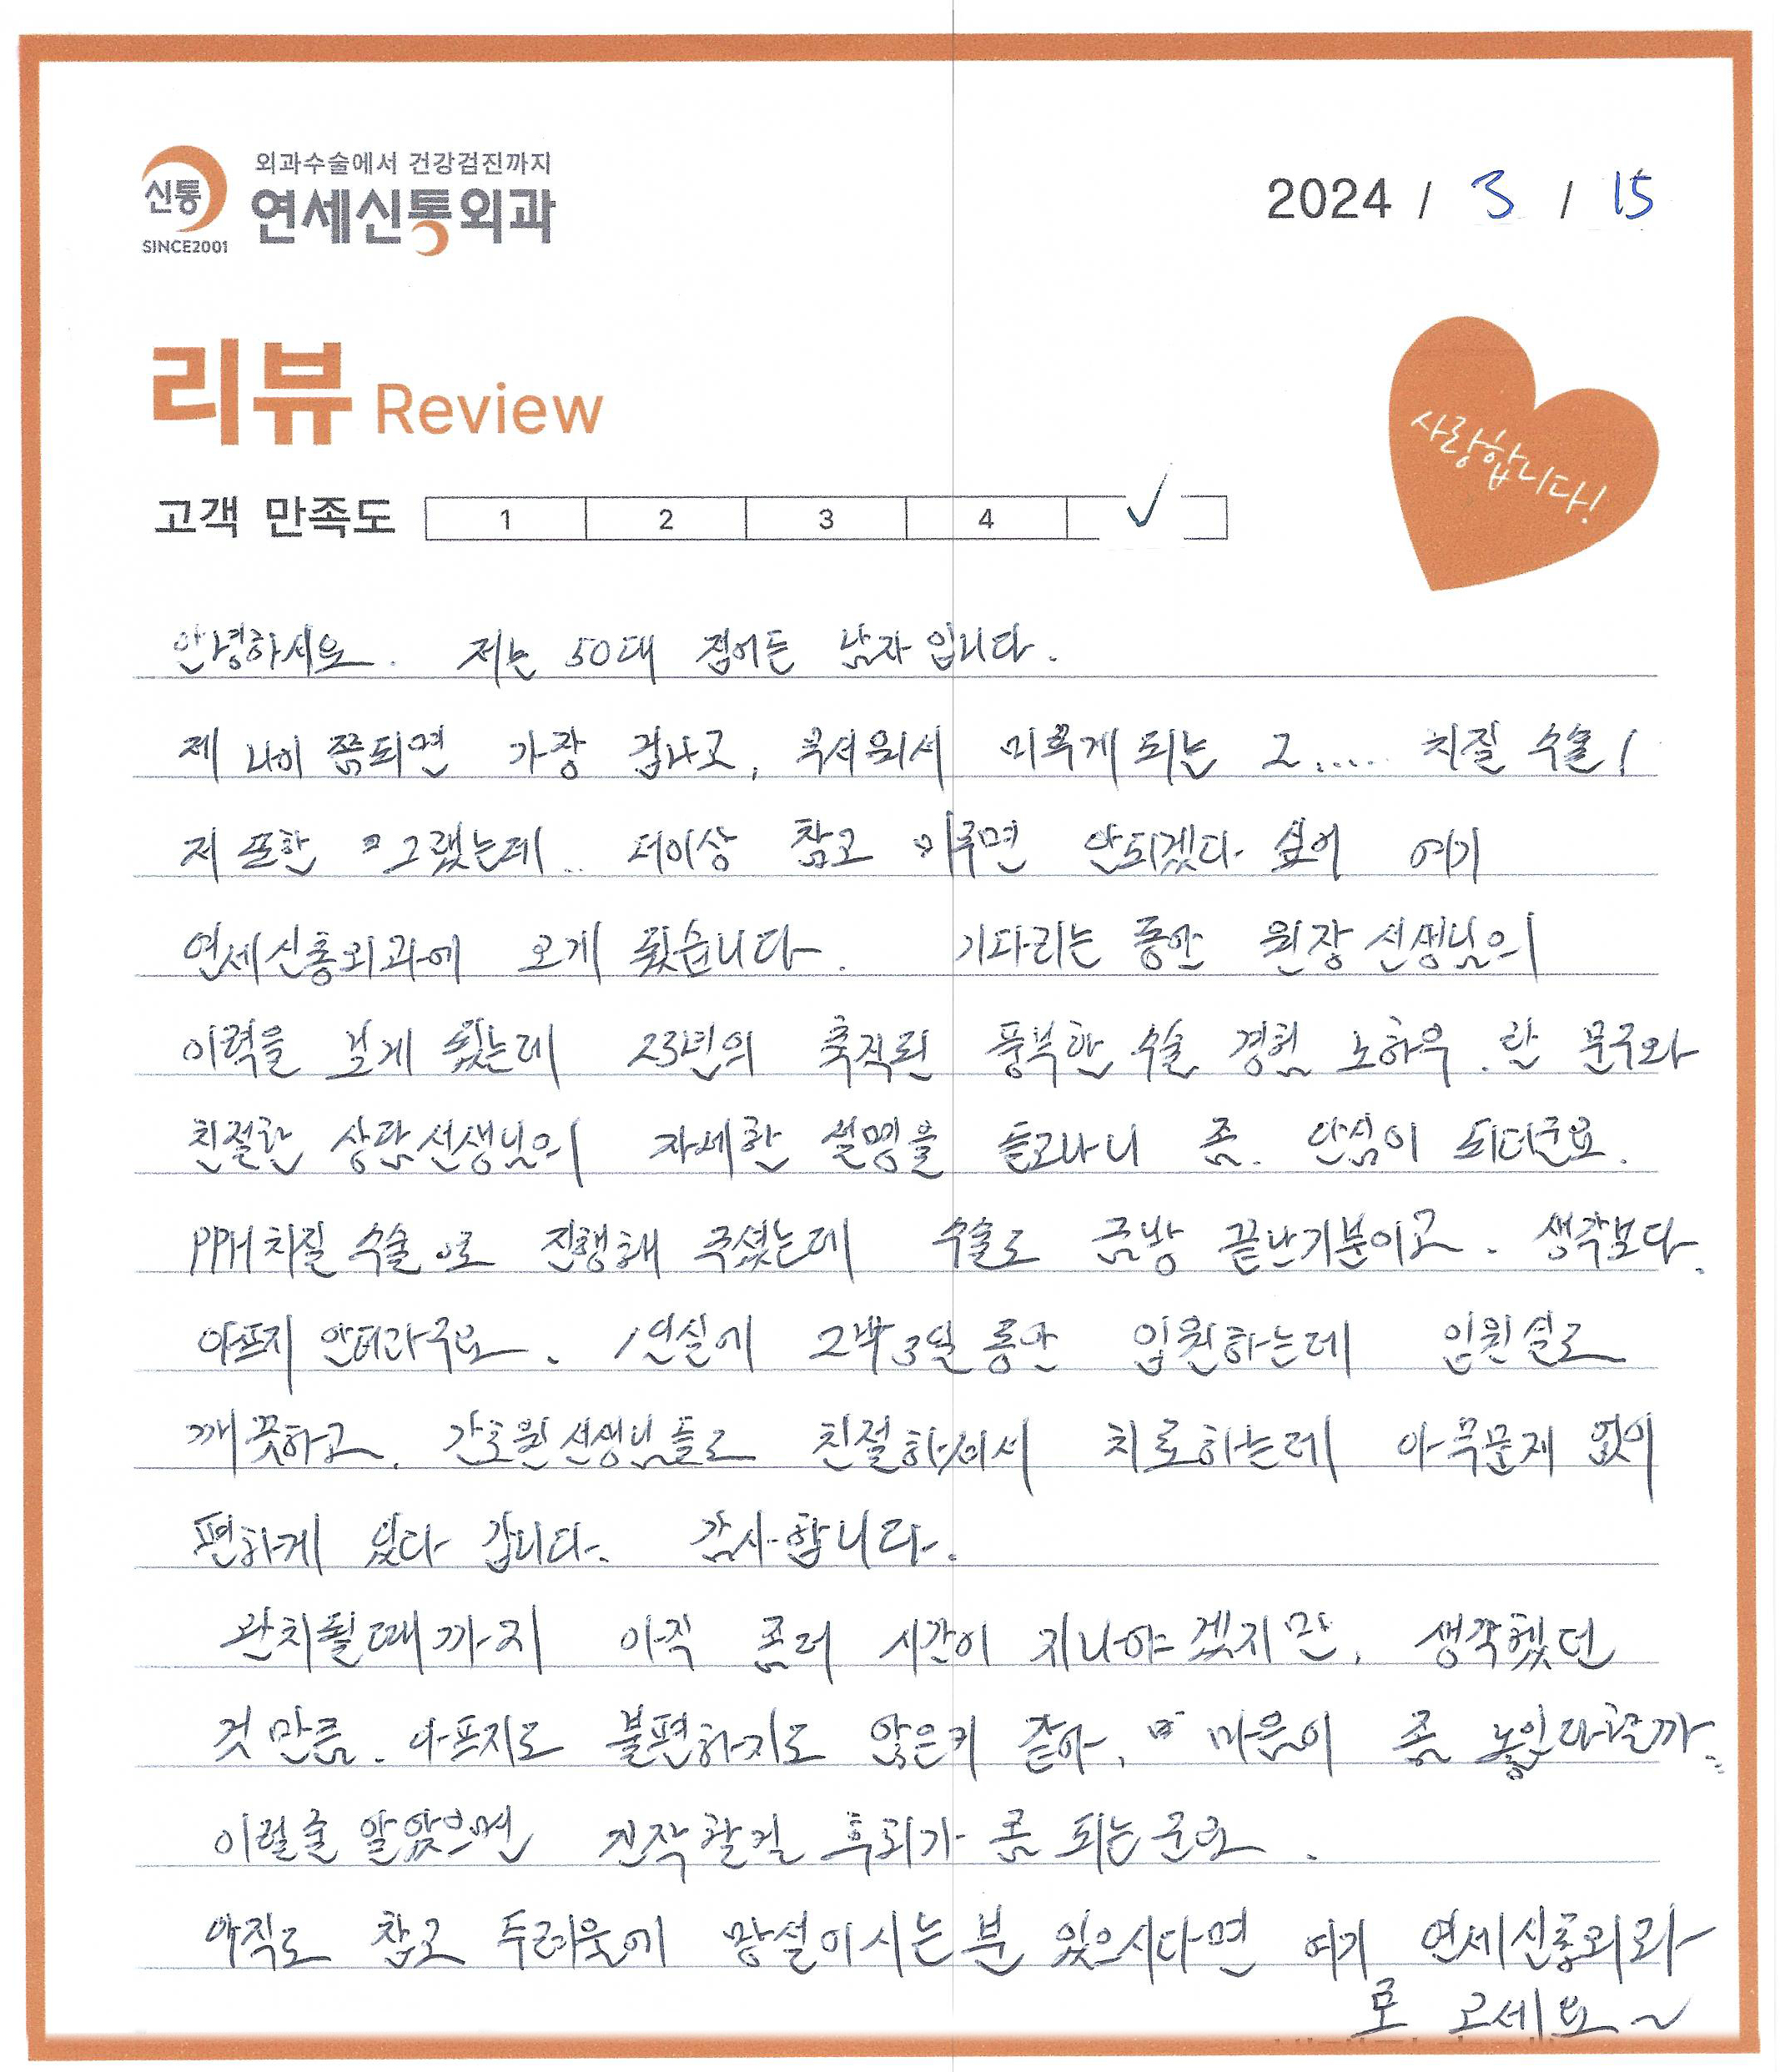 신통
SINCE2001
외과수술에서 건강검진까지
연세신통외과
2024 / 3 / 15
리뷰 Review
사랑합니다!
고객 만족도 1 2 3 4 ✓
안녕하세요. 저는 50대 접어든 남자입니다.
제 나이 쯤되면 가장 겁나고, 무서워서 미루게 되는 그..... 치질 수술!
저 또한 그랬는데.. 더이상 참고 미루면 안되겠다 싶어 여기
연세신통외과에 오게 됐습니다. 기다리는 동안 원장선생님의
이력을 보게 됐는데 23년의 축적된 풍부한 수술 경험 노하우. 란 문구와
친절한 상담선생님의 자세한 설명을 듣고나니 좀. 안심이 되더군요.
PPH치질 수술으로 진행해 주셨는데 수술도 금방 끝난기분이고. 생각보다.
아프지 안터라구요. 1인실에 2박3일동안 입원하는데 입원실도
깨끗하고. 간호원선생님들도 친절하셔서 치료하는데 아무문제 없이
편하게 있다 갑니다. 감사합니다.
완치될때까지 아직 좀더 시간이 지나야겠지만, 생각했던
것만큼. 아프지도 불편하지도 않은거 같아, 마음이 좀 놓인다할까..
이럴줄 알았으면 진작할걸 후회가 좀 되는군요.
아직도 참고 두려움에 망설이시는분 있으시다면 여기 연세신통외과
로 오세요~